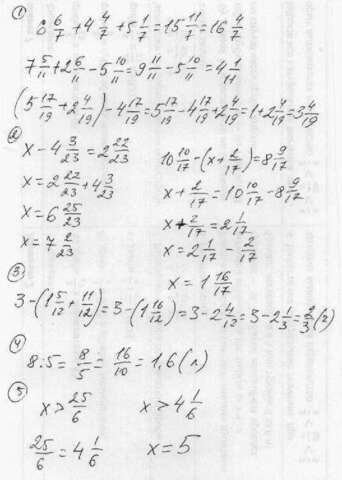 ①
6 6/7 + 4 4/7 + 5 1/7 = 15 11/7 = 16 4/7
7 5/11 + 2 6/11 - 5 10/11 = 9 11/11 - 5 10/11 = 4 1/11
(5 17/19 + 2 4/19) - 4 17/19 = 5 17/19 - 4 17/19 + 2 4/19 = 1 + 2 4/19 = 3 4/19
②
x - 4 3/23 = 2 22/23
x = 2 22/23 + 4 3/23
x = 6 25/23
x = 7 2/23
10 10/17 - (x + 2/17) = 8 9/17
x + 2/17 = 10 10/17 - 8 9/17
x + 2/17 = 2 1/17
x = 2 1/17 - 2/17
x = 1 16/17
③
3 - (1 5/12 + 11/12) = 3 - (1 16/12) = 3 - 2 4/12 = 3 - 2 1/3 = 2/3 (г)
④
8 : 5 = 8/5 = 16/10 = 1,6 (л)
⑤
x > 25/6 x > 4 1/6
25/6 = 4 1/6 x = 5